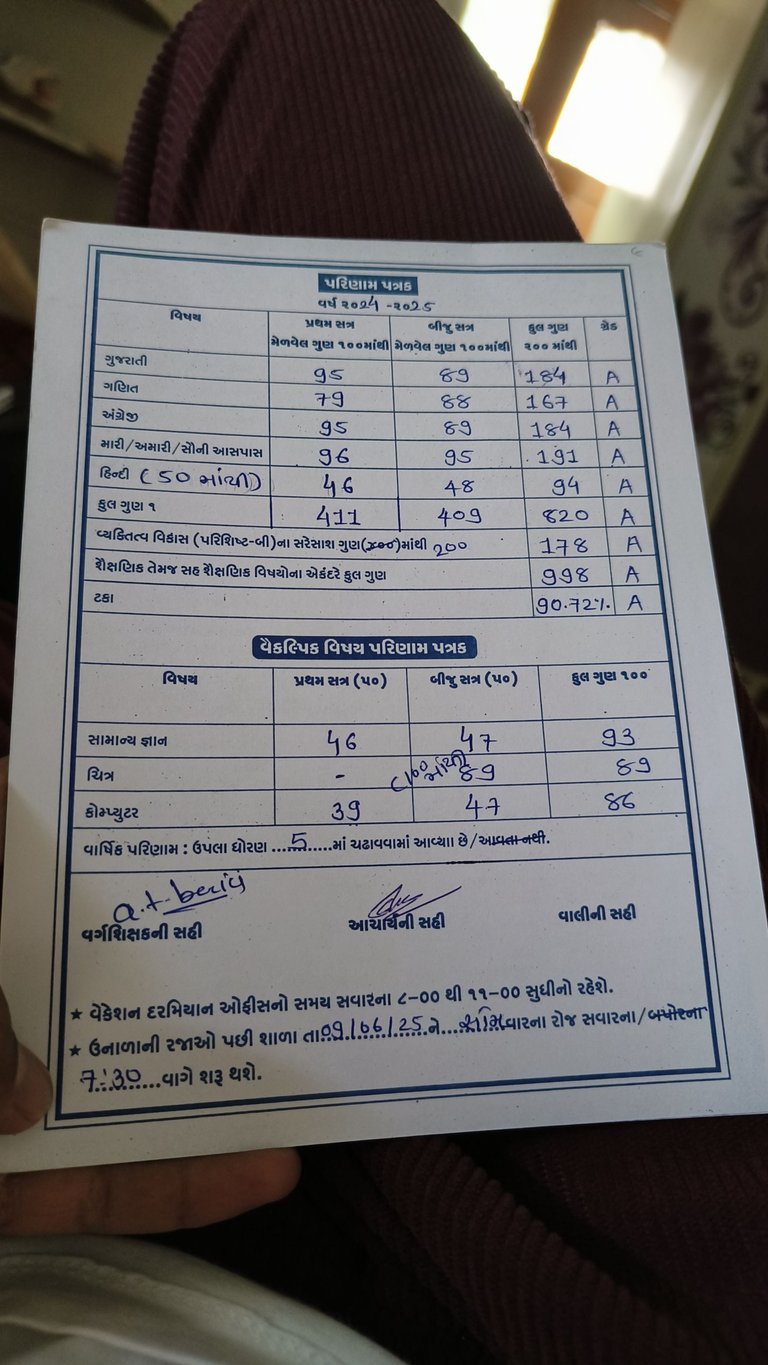 પરિણામ પત્રક
વર્ષ ૨૦24 -૨૦૨5
વિષય પ્રથમ સત્ર બીજુ સત્ર કુલ ગુણ ગ્રેડ
મેળવેલ ગુણ ૧૦૦માંથી મેળવેલ ગુણ ૧૦૦માંથી ૨૦૦ માંથી
ગુજરાતી 95 89 184 A
ગણિત 79 88 167 A
અંગ્રેજી 95 89 184 A
મારી/અમારી/સૌની આસપાસ 96 95 191 A
હિન્દી (50 માંથી) 46 48 94 A
કુલ ગુણ ૧ 411 409 820 A
વ્યક્તિત્વ વિકાસ (પરિશિષ્ટ-બી)ના સરેસાશ ગુણ(૨૦૦)માંથી 200 178 A
શૈક્ષણિક તેમજ સહ શૈક્ષણિક વિષયોના એકંદરે કુલ ગુણ 998 A
ટકા 90.72% A
વૈકલ્પિક વિષય પરિણામ પત્રક
વિષય પ્રથમ સત્ર (૫૦) બીજુ સત્ર (૫૦) કુલ ગુણ ૧૦૦
સામાન્ય જ્ઞાન 46 47 93
ચિત્ર - (100 માંથી) 89 89
કોમ્પ્યુટર 39 47 86
વાર્ષિક પરિણામ : ઉપલા ધોરણ ...5.....માં ચઢાવવામાં આવ્યાા છે/આવતા નથી.
વર્ગશિક્ષકની સહી આચાર્યની સહી વાલીની સહી
★ વેકેશન દરમિયાન ઓફીસનો સમય સવારના ૮-૦૦ થી ૧૧-૦૦ સુધીનો રહેશે.
★ ઉનાળાની રજાઓ પછી શાળા તા.09/06/25.ને....સોમવારના રોજ સવારના/બપોરના
7:30......વાગે શરૂ થશે.